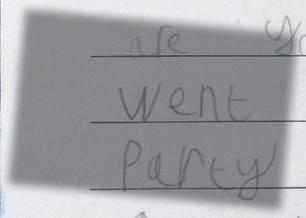 are
went
Party